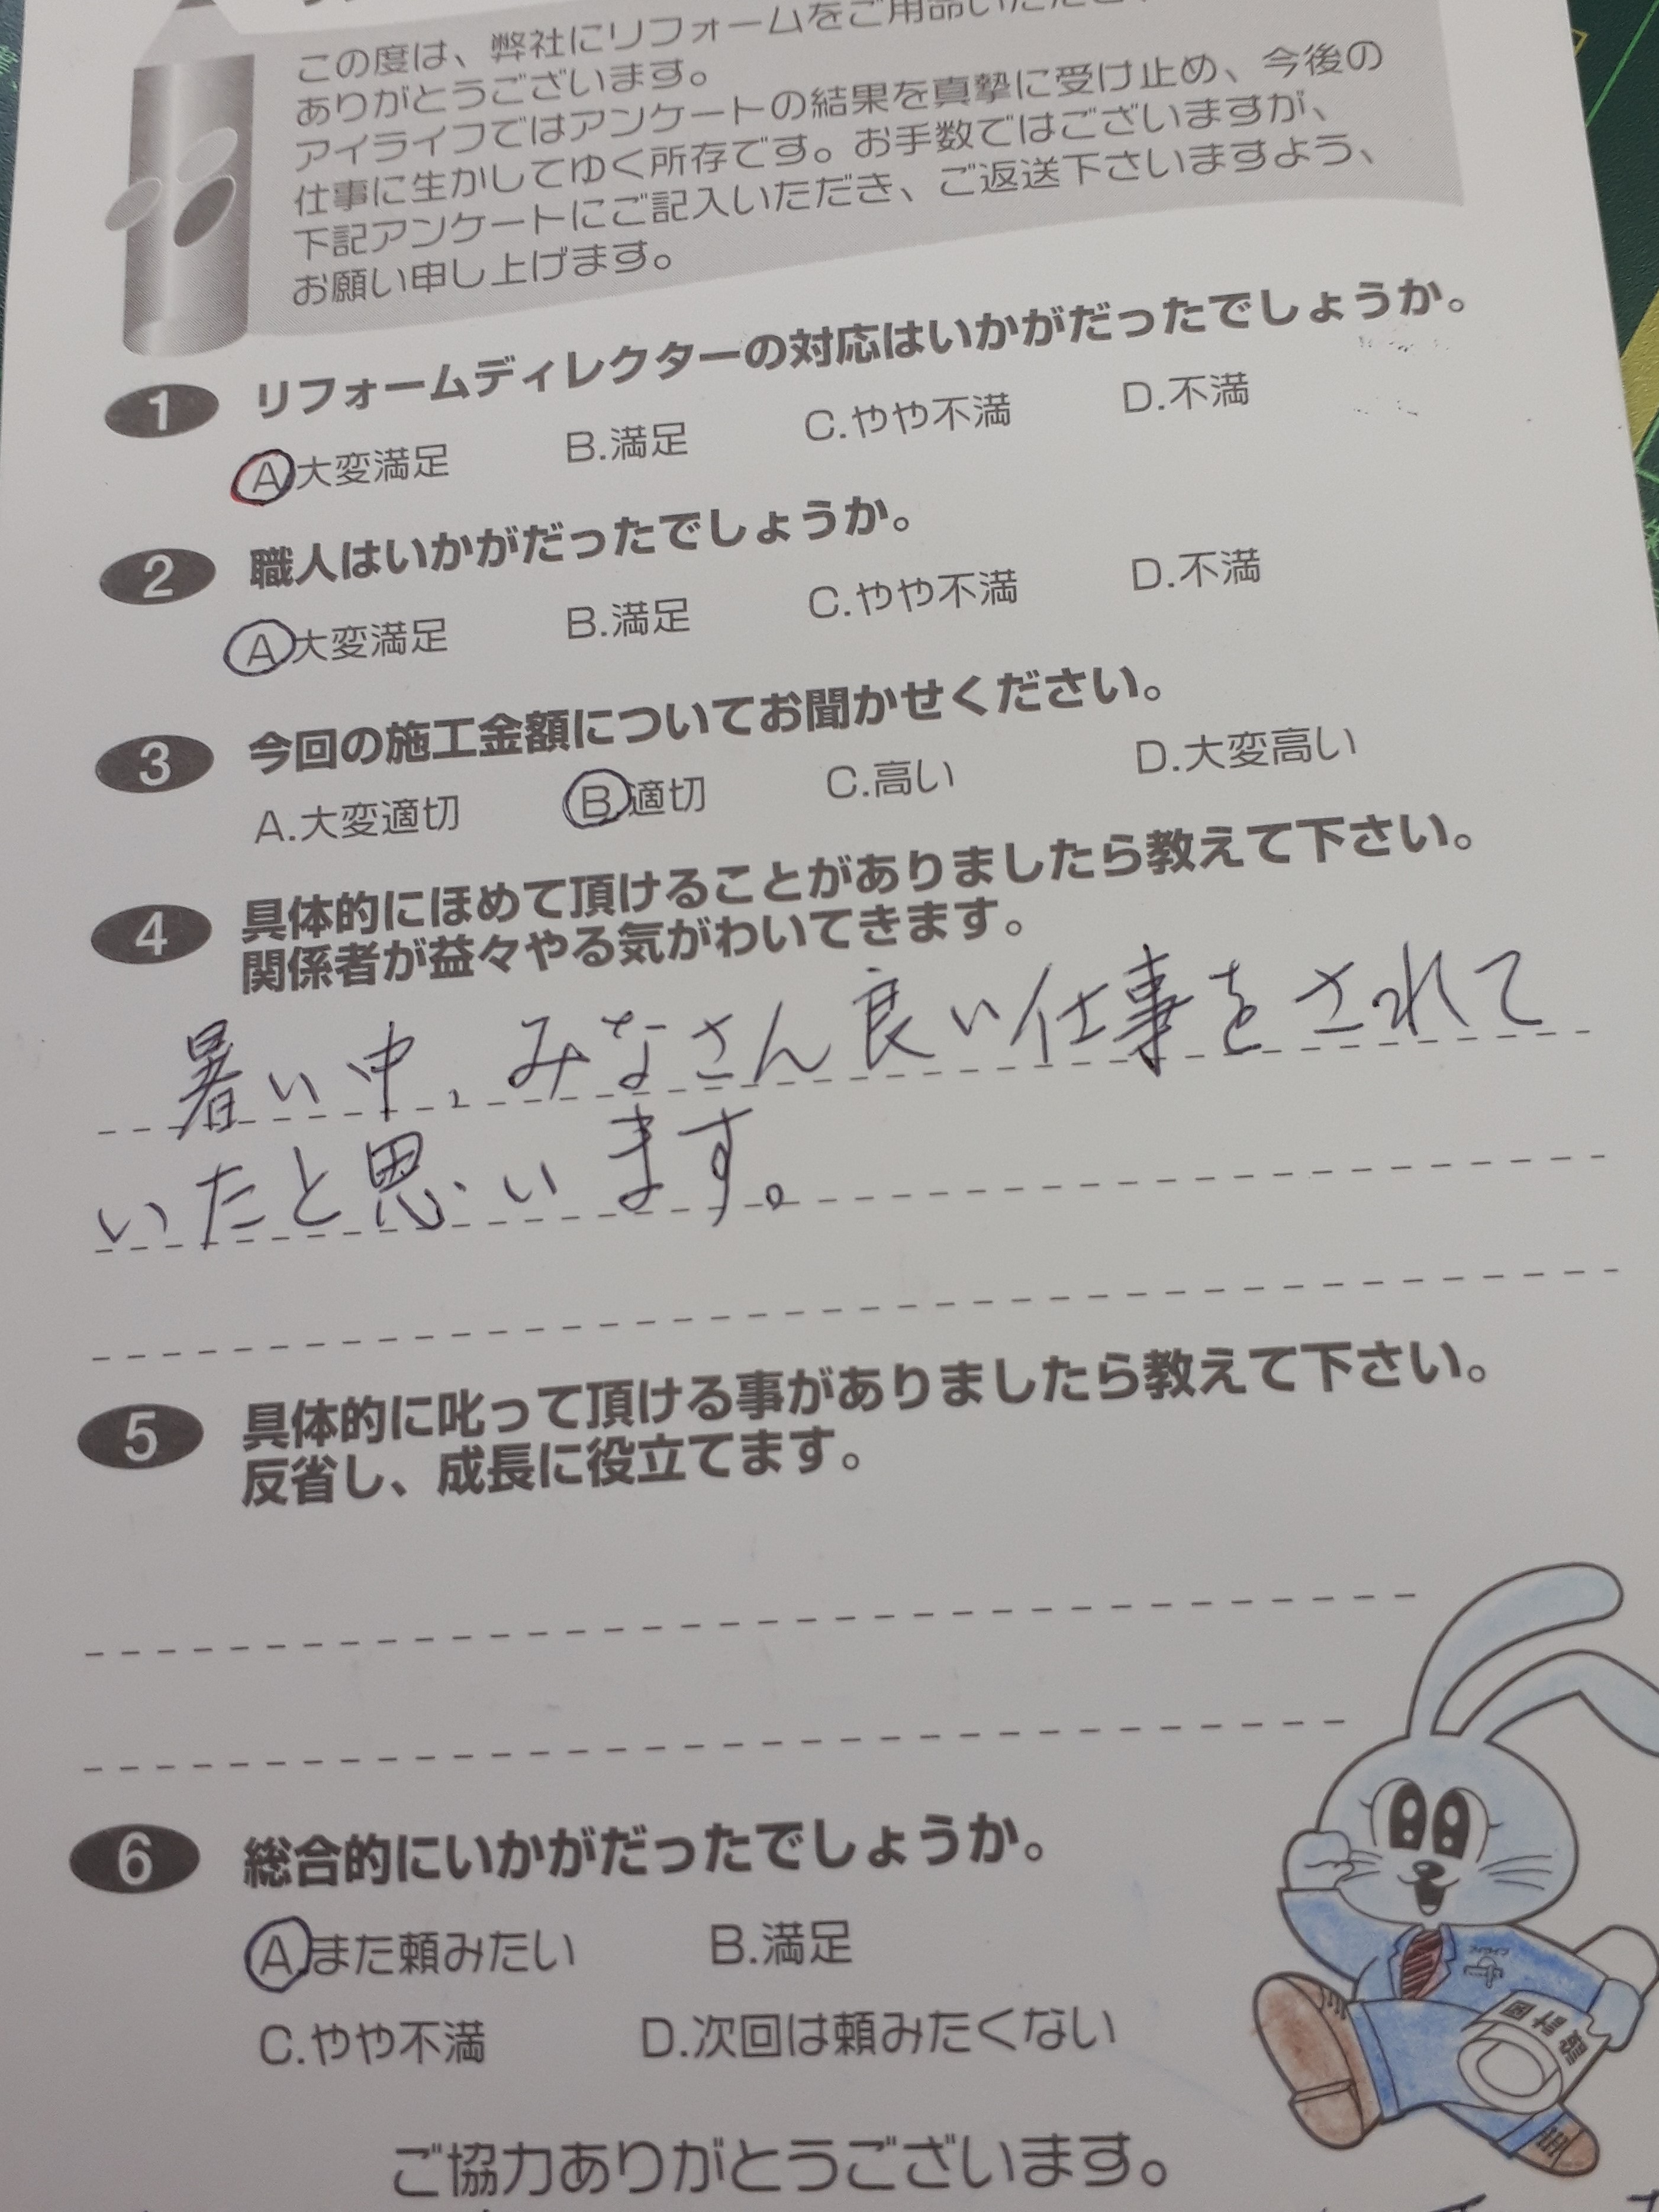 この度は、弊社にリフォームをご用命いただき
ありがとうございます。
アイライフではアンケートの結果を真摯に受け止め、今後の
仕事に生かしてゆく所存です。お手数ではございますが、
下記アンケートにご記入いただき、ご返送下さいますよう、
お願い申し上げます。
1 リフォームディレクターの対応はいかがだったでしょうか。
A.大変満足 B.満足 C.やや不満 D.不満
2 職人はいかがだったでしょうか。
A.大変満足 B.満足 C.やや不満 D.不満
3 今回の施工金額についてお聞かせください。
A.大変適切 B.適切 C.高い D.大変高い
4 具体的にほめて頂けることがありましたら教えて下さい。
関係者が益々やる気がわいてきます。
暑い中、みなさん良い仕事をされて
いたと思います。
5 具体的に叱って頂ける事がありましたら教えて下さい。
反省し、成長に役立てます。
6 総合的にいかがだったでしょうか。
A.また頼みたい B.満足
C.やや不満 D.次回は頼みたくない
ご協力ありがとうございます。